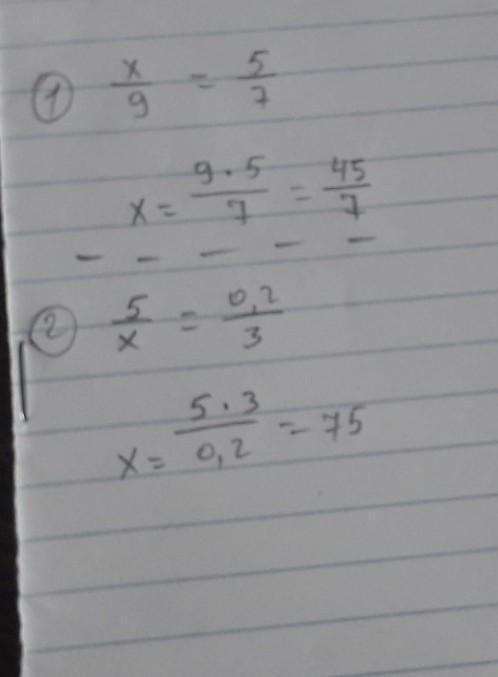 ① x/9 = 5/7
x = 9 · 5/7 = 45/7
- - - - -
② 5/x = 0,2/3
x = 5 · 3/0,2 = 75